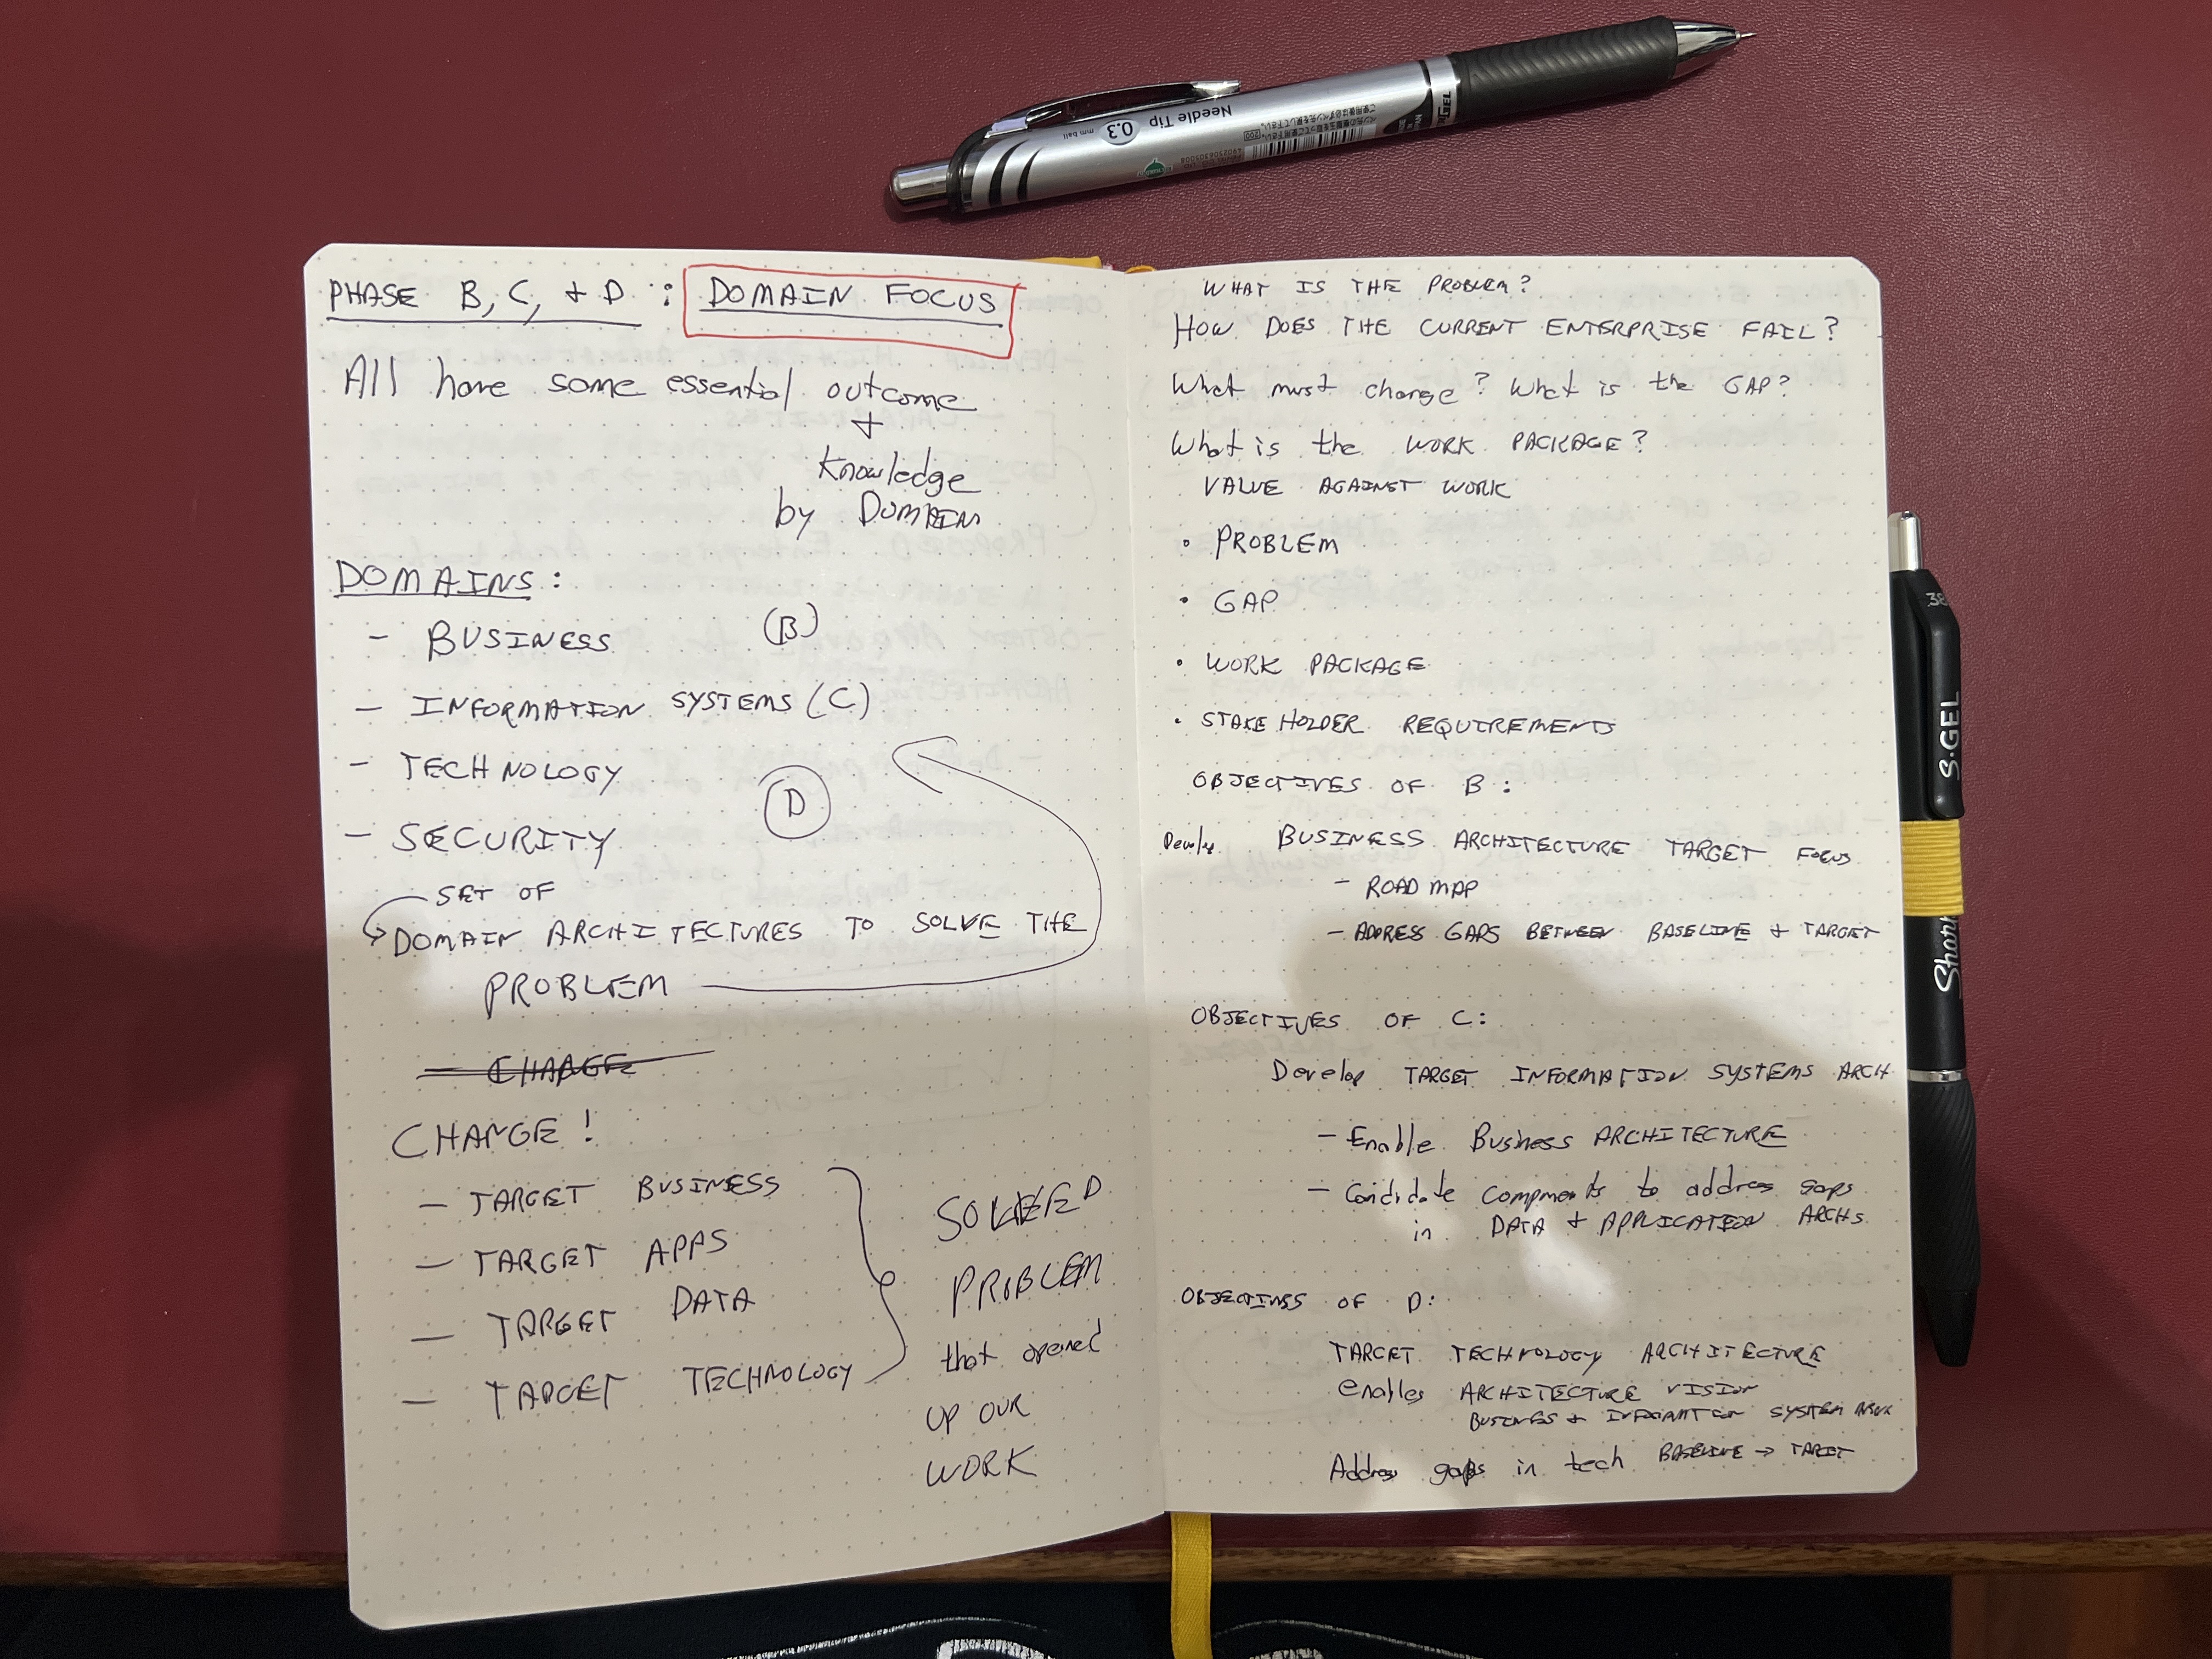 PHASE B, C, + D : DOMAIN FOCUS
All have some essential outcome
+
Knowledge
by DOMAIN
DOMAINS:
- BUSINESS (B)
- INFORMATION SYSTEMS (C)
- TECHNOLOGY D
- SECURITY
SET OF
DOMAIN ARCHITECTURES TO SOLVE THE
PROBLEM
CHANGE
CHANGE:
- TARGET BUSINESS
- TARGET APPS
- TARGET DATA
- TARGET TECHNOLOGY
SOLVED
PROBLEM
that opened
up our
WORK
WHAT IS THE PROBLEM?
HOW DOES THE CURRENT ENTERPRISE FAIL?
What must change? What is the GAP?
What is the WORK PACKAGE?
VALUE AGAINST WORK
• PROBLEM
• GAP
• WORK PACKAGE
• STAKEHOLDER REQUIREMENTS
OBJECTIVES OF B:
Develop BUSINESS ARCHITECTURE TARGET FOCUS
- ROADMAP
- ADDRESS GAPS BETWEEN BASELINE + TARGET
OBJECTIVES OF C:
Develop TARGET INFORMATION SYSTEMS ARCH
- Enable BUSINESS ARCHITECTURE
- Candidate Components to address gaps
in DATA + APPLICATION ARCHS
OBJECTIVES OF D:
TARGET TECHNOLOGY ARCHITECTURE
enables ARCHITECTURE VISION
BUSINESS + INFORMATION SYSTEM
Address gaps in tech BASELINE → TARGET
Sharp
S·GEL
Needle Tip 0.3 mm ball
4902506305008